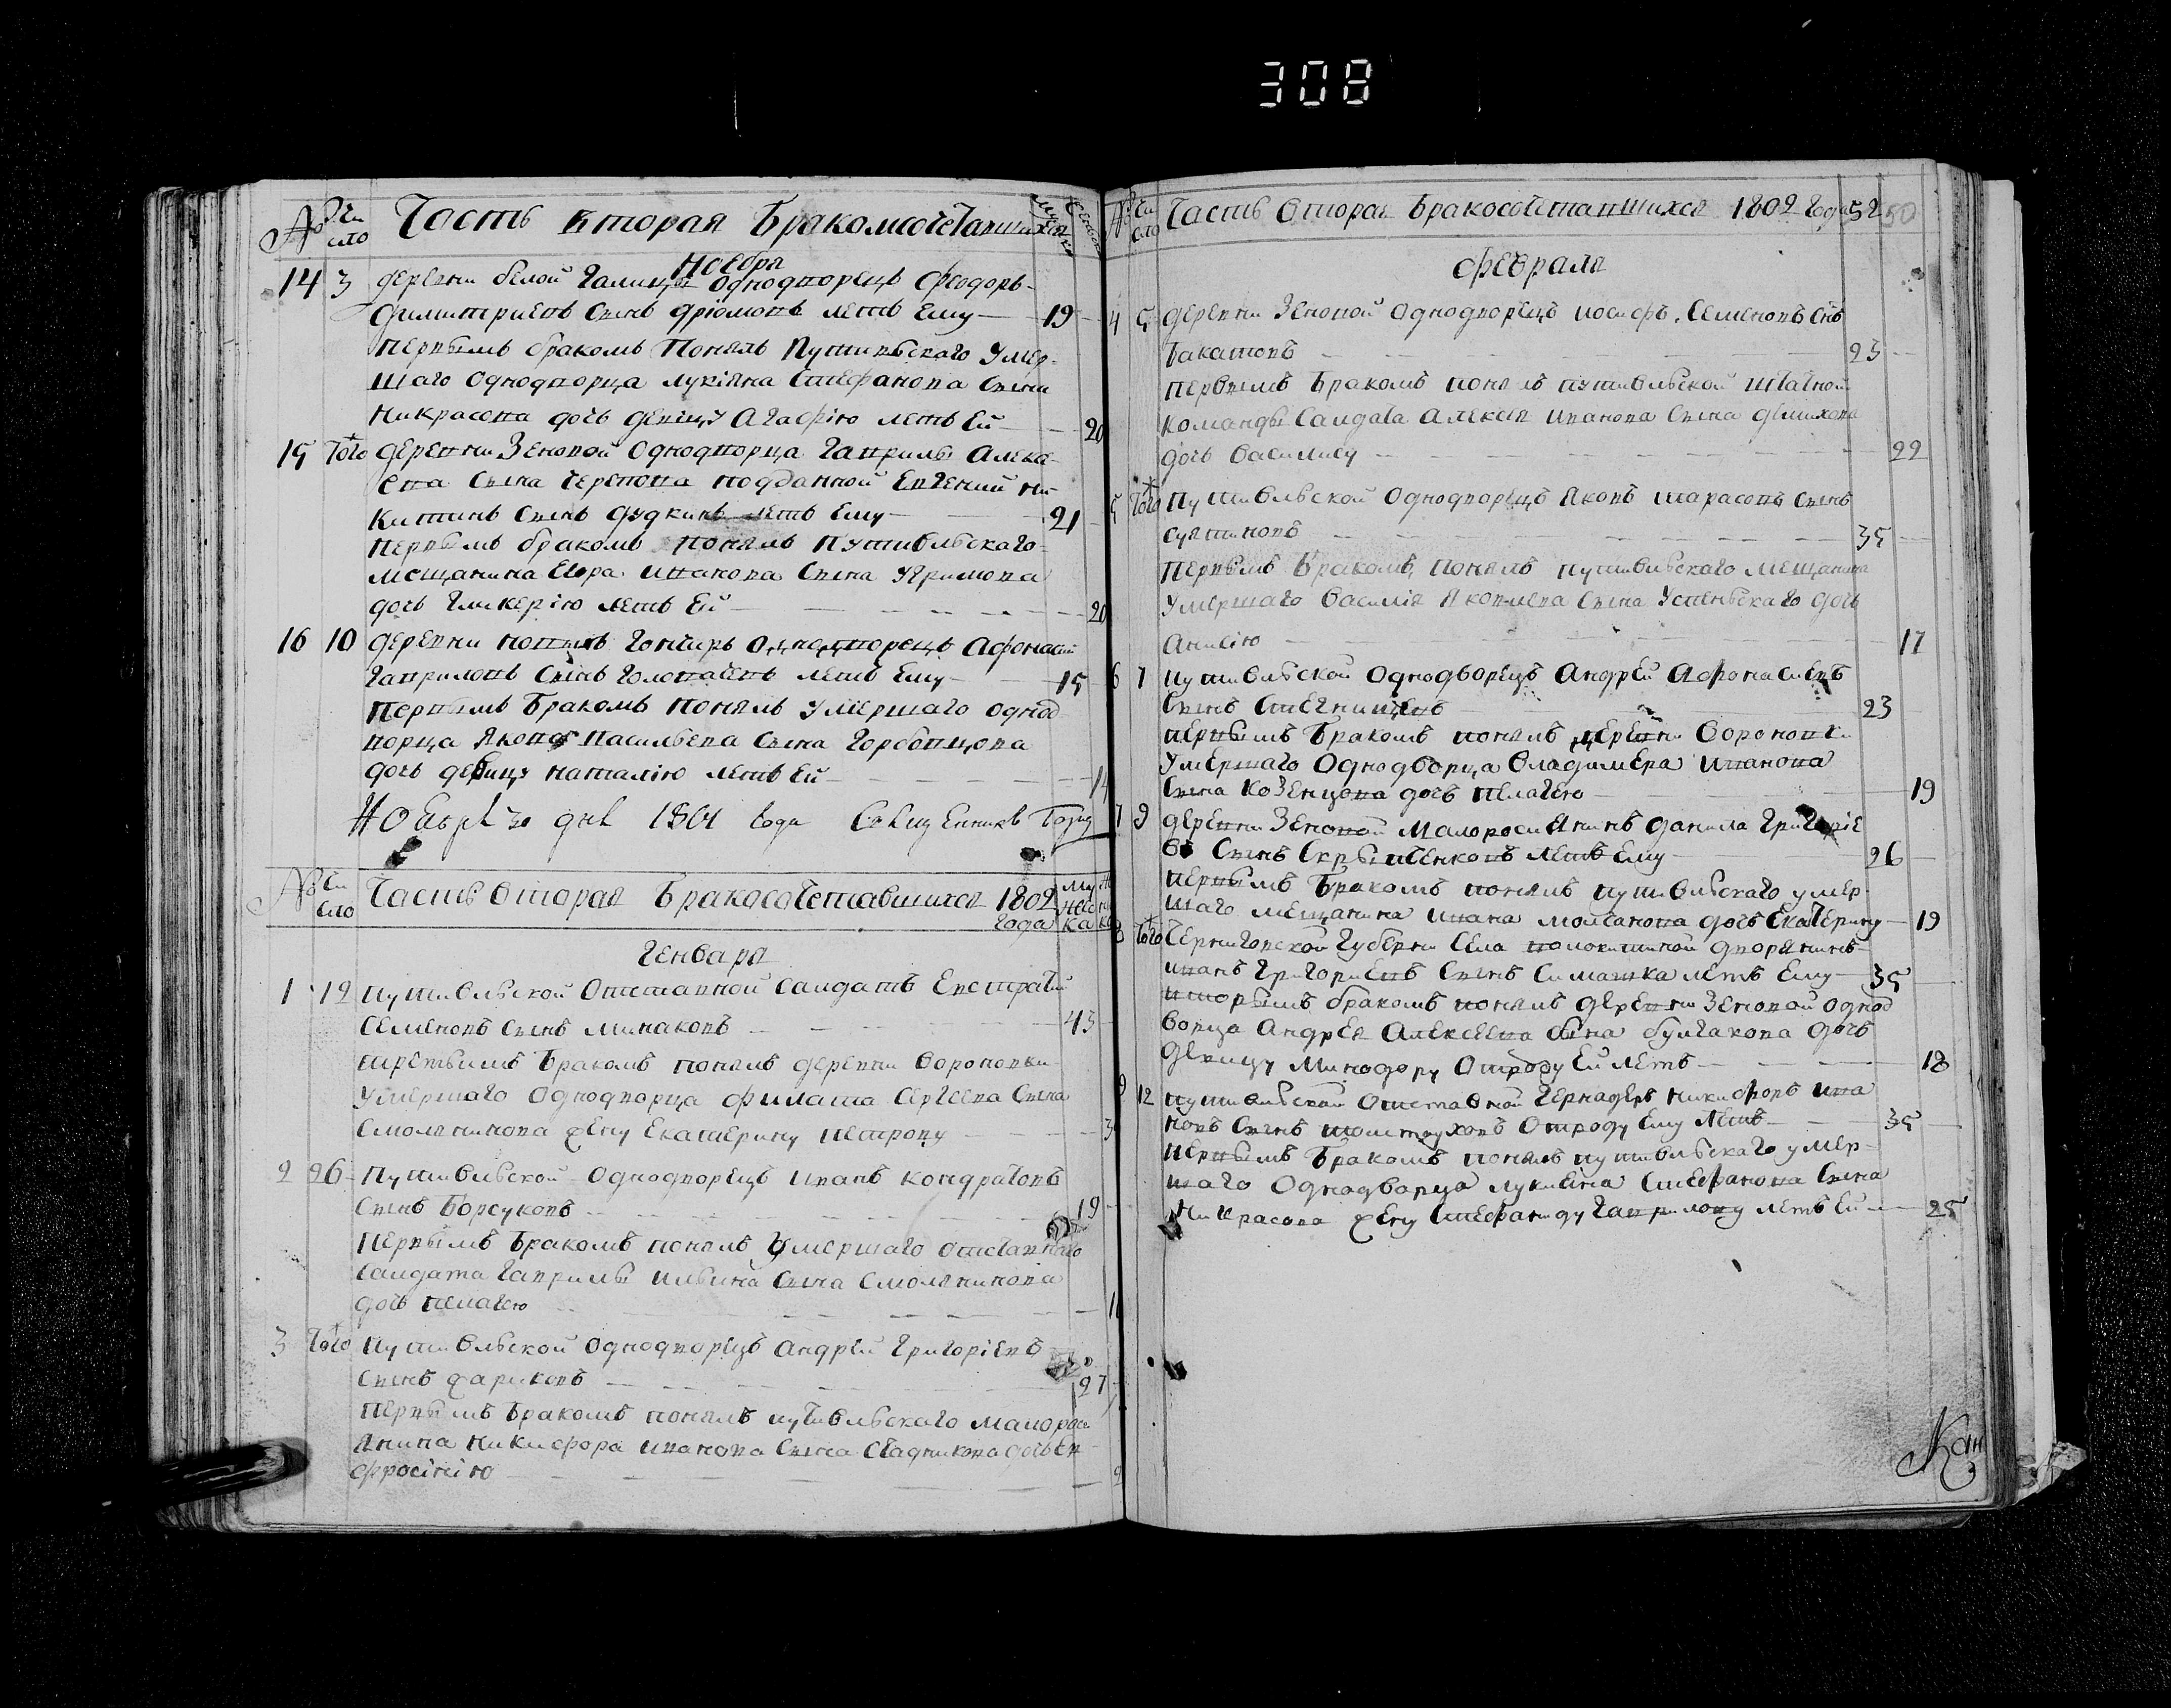 308
№ Число Часть вторая Бракомсочетавшихся
Ноебря
14 3 деревни белой Галицы Однодворецъ Феодоръ
Димитриевъ Сынъ Дрюмовъ летъ Ему 19
первымъ бракомъ Понялъ Путивьского Умер-
шаго Однодворца лукіяна Стефанова Сына
Никрасова дочь девіцу Агафію летъ Ей 20
15 Того деревни Зеновой Однодворца Гаврилы Алекс-
Сева Сына Черепова подданной Евгений Ни-
китинъ Сынъ дудкинъ летъ Ему 21
первымъ бракомъ понялъ Путивльскаго
мещанина Егора Ивакова Сына Угримова
дочь Гликерію летъ Ей 20
16 10 деревни новыхъ Гончаръ Однодворецъ Афонасий
Гавриловъ Сынъ Головачевъ летъ Ему 15
Первымъ Бракомъ Понялъ Умершаго Однод
ворца Якова Васильева Сына Горбовцова
дочь девицу наталію летъ Ей 14
Ноебря 30 дня 1801 Года Священникъ
№ Число Часть Вторая Бракосочетавшихся 1802 года
Генваря
1 12 Путивльской Отставной Салдатъ Евстратий
Семеновъ Сынъ Минаковъ 43
третьимъ Бракомъ понялъ деревни Вороновки
Умершаго Однодворца Филата Сергеева Сына
Смольнинова жену Екатерину Петрову
2 26 Путивльской Однодворецъ Иванъ Кондратовъ
Сынъ Борсуковъ 19
Первымъ Бракомъ понялъ Умершаго Отставнаго
Салдата Гаврилы Ильина Сына Смольнинова
дочь Пелагею
3 Того Путивльской Однодворецъ Андрей Григоріевъ
Сынъ Жариковъ 27
Первымъ Бракомъ понялъ путивльскаго Малорос
Янина Никифора Иванова Сына Стадникова дочь Ев
фросінію
№ Число Часть Вторая Бракосочетавшихся 1802 Года 52 50
Февраля
4 5 деревни Зеновой Однодворецъ Иосифъ Семеновъ Снъ
Бакатовъ 23
первымъ Бракомъ понялъ путивльской штатной
Команды Салдата Алексея Иванова Сына Демихова
дочь Василису 22
5 Того Путивльской Однодворецъ Яковъ Тарасовъ Сынъ
Сутиновъ 35
Первымъ Бракомъ понялъ путивльскаго мещанина
Умершаго Василія Яковлева Сына Успеньскаго дочь
Анисію 17
6 7 Путивльской Однодворецъ Андрей Афонасиевъ
Сынъ 23
первымъ Бракомъ понялъ деревни Вороновки
Умершаго Однодворца Владимера Иванова
Сына Козенцова дочь Пелагею 19
7 9 деревни Зеновой Малоросиянинъ Данила Григоріе
въ Сынъ Скрыпченковъ летъ Ему 26
первымъ Бракомъ понялъ путивльскаго умер
шаго мещанина Ивана Молчанова дочь Екатерину 19
8 Того Черниговской Губерни Села дворянинъ
Иванъ Григориевъ Сынъ Симашка летъ Ему 35
вторымъ бракомъ понялъ деревни Зеновой Однод
ворца Андрея Алексеева Сына булгакова дочь
девицу Минодору Отроду Ей летъ 18
9 12 путивльской Отставной Гернадеръ Никифоръ Ива
новъ Сынъ Толстоуховъ Отроду Ему летъ 35
первымъ Бракомъ понялъ путивльскаго умер-
шаго Однодворца лукиена Стефанова Сына
Никрасова жену Стефаниду Гаврилову летъ Ей 25